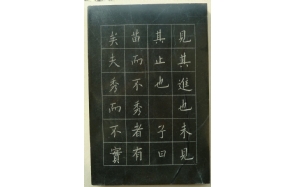 見其進也未見
其止也 子曰
苗而不秀者有
矣夫秀而不實